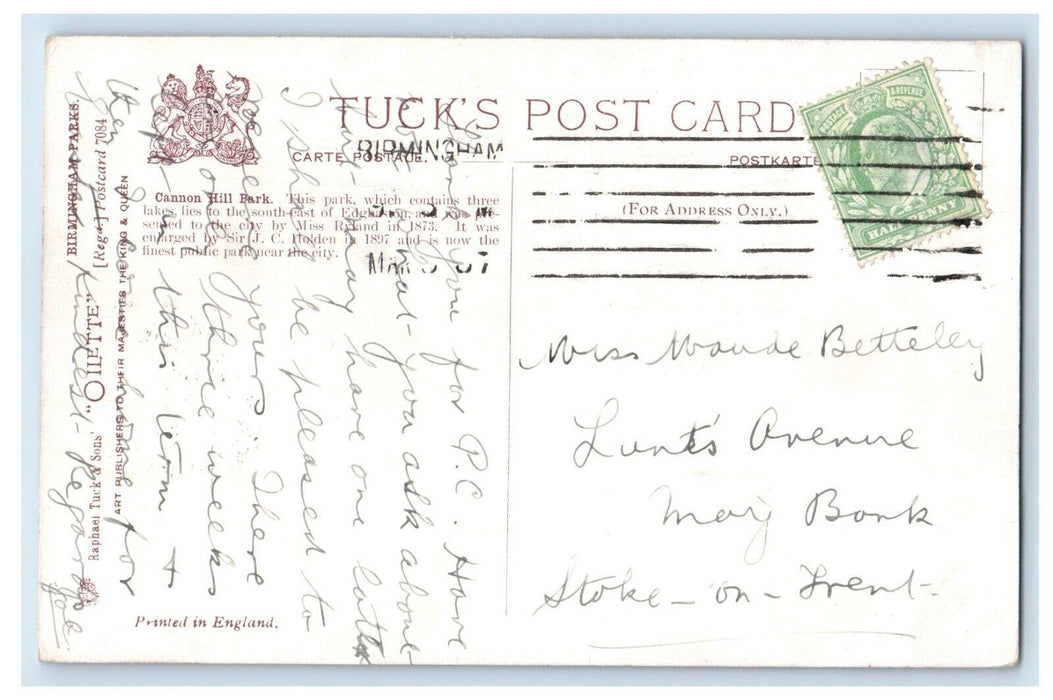 TUCK'S POST CARD
CARTE POSTALE.
POSTKARTE
(FOR ADDRESS ONLY.)
BIRMINGHAM
MAR 3 07
POSTAGE & REVENUE
HALFPENNY
Cannon Hill Park. This park, which contains three
lakes, lies to the south-east of Edgbaston and was
sented to the city by Miss Ryland in 1873. It was
enlarged by Sir J. C. Holden in 1897 and is now the
finest public park near the city.
BIRMINGHAM PARKS.
[Regd.] Postcard 7084
Raphael Tuck & Sons' "OILETTE"
ART PUBLISHERS TO THEIR MAJESTIES THE KING & QUEEN
Printed in England.
Thank you for P.C. Have
not got what you ask about
but may have one later
I shall be pleased to
see yours. There
are only three weeks
left in this term &
then I go home for
Kindest Regards
Joe
Miss Maude Betteley
Lunt's Avenue
May Bank
Stoke-on-Trent